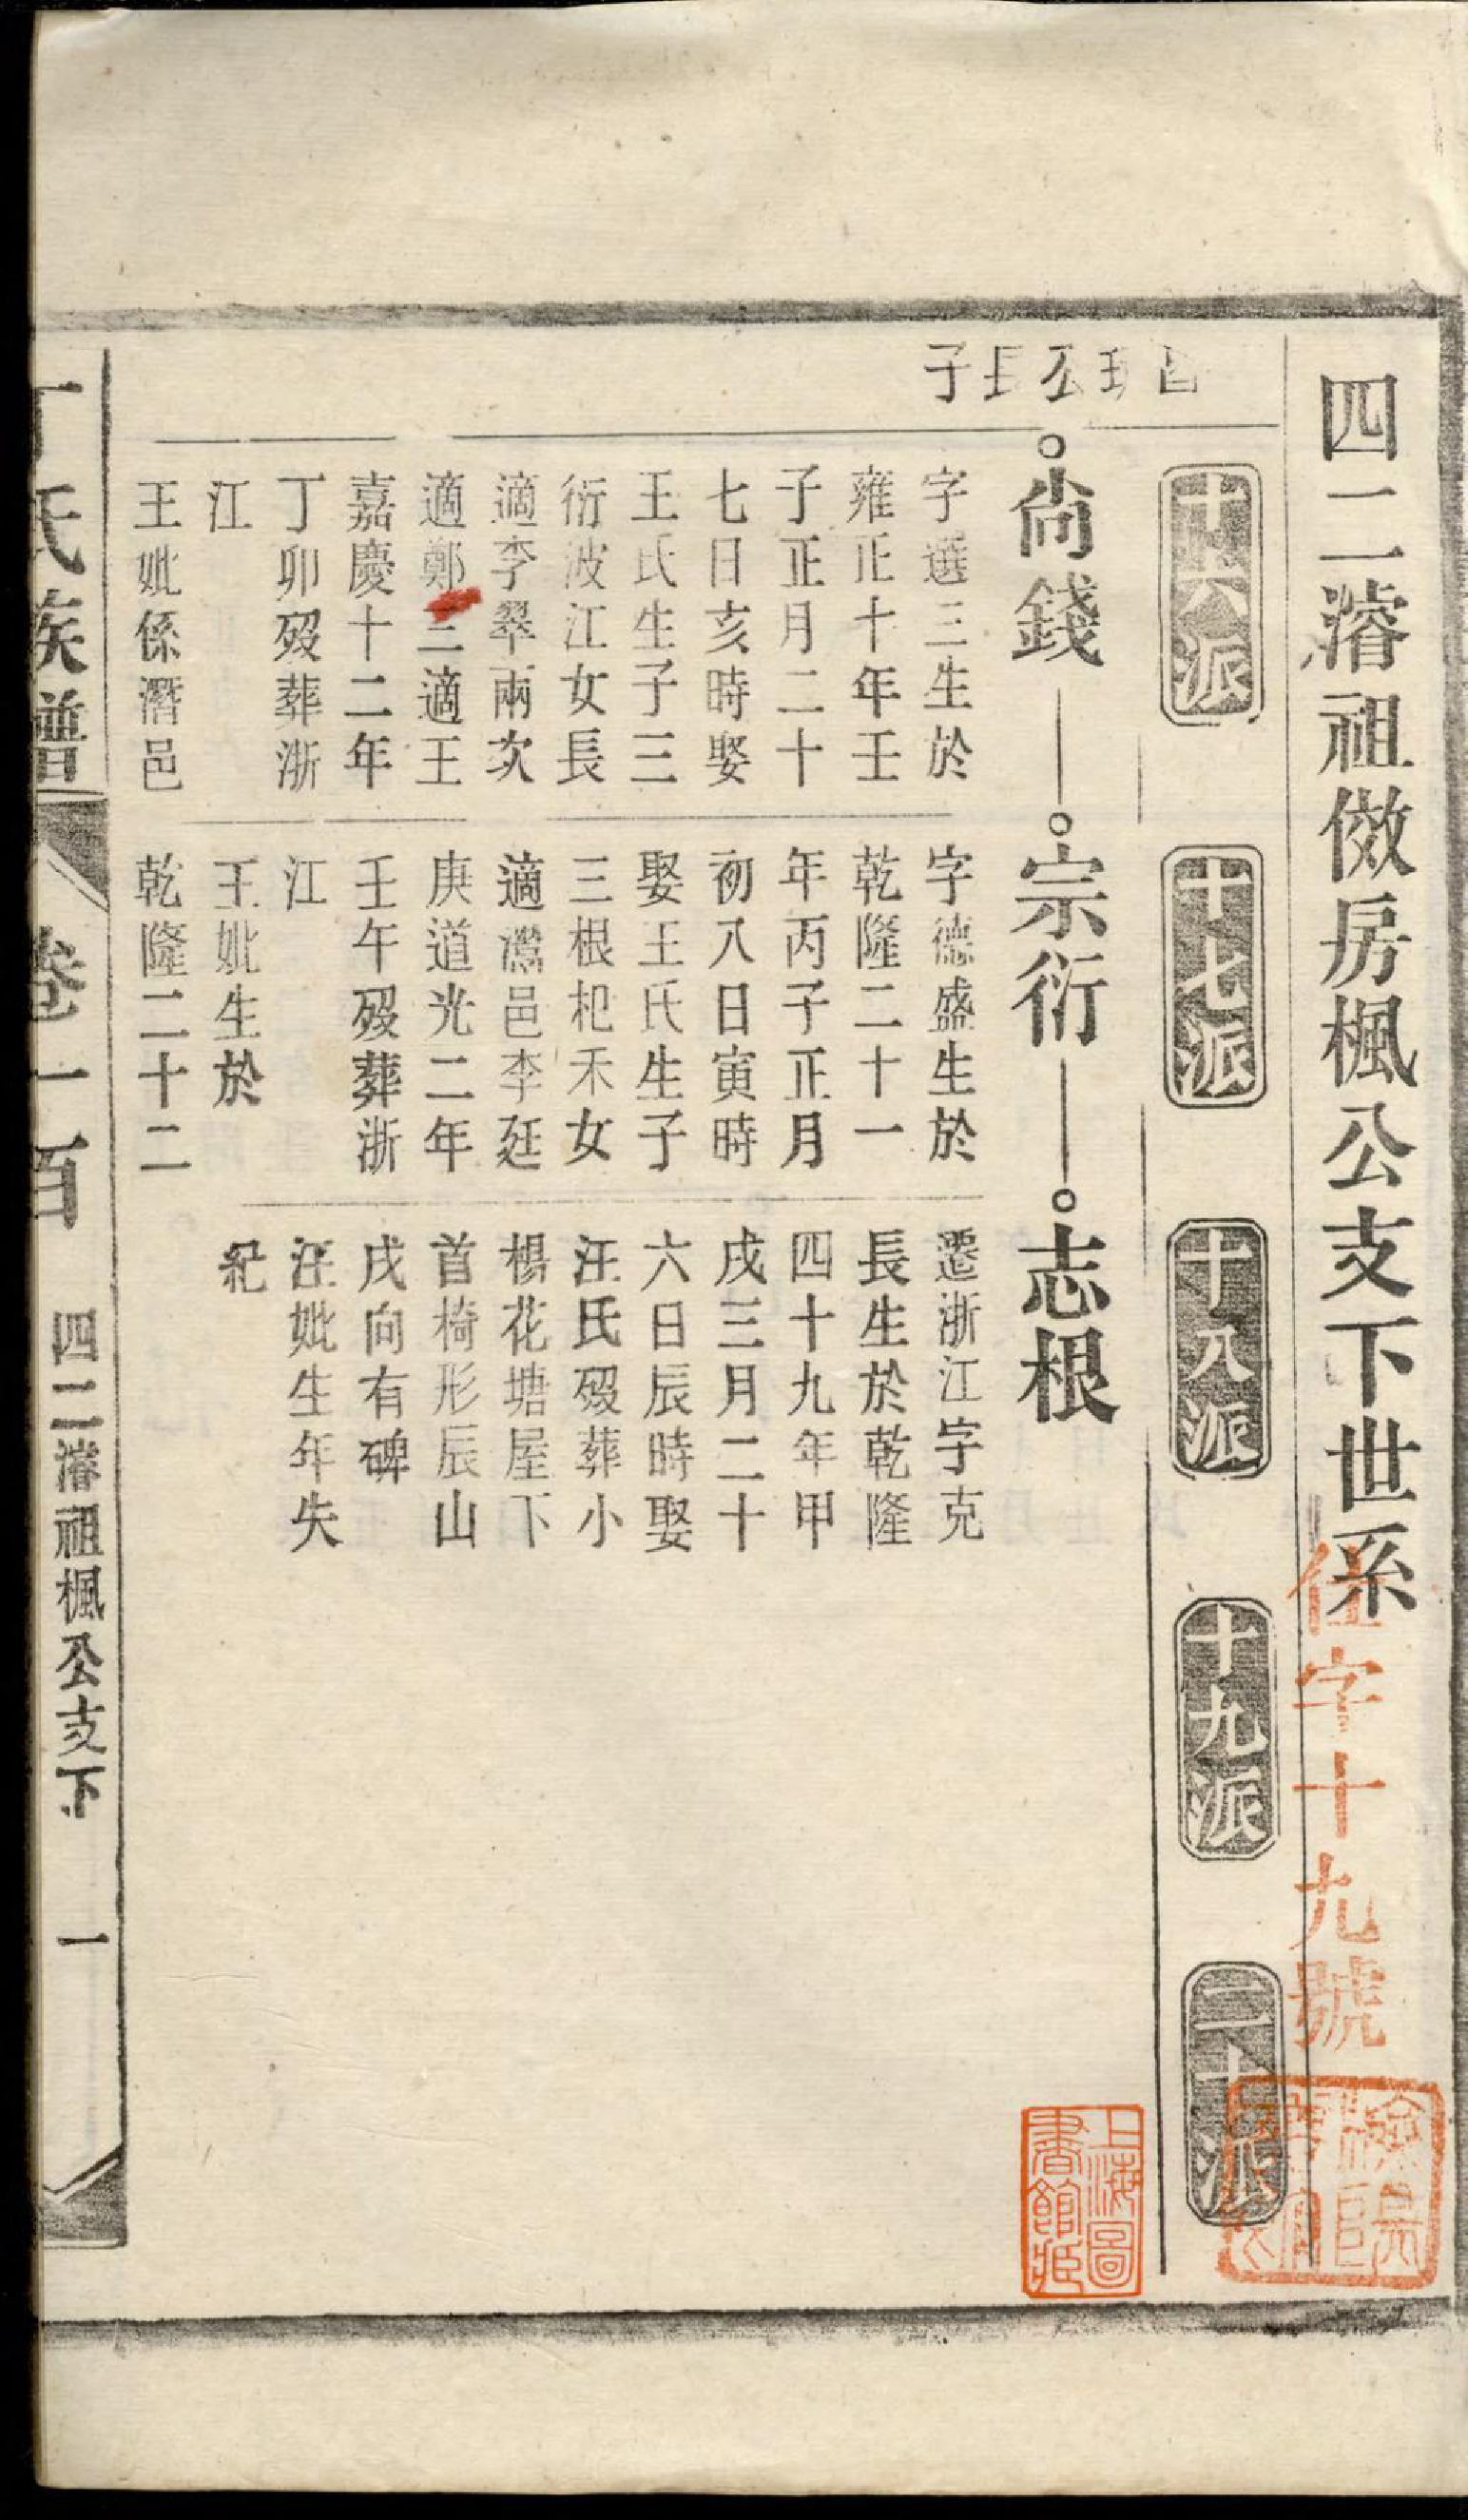 四二濬祖倣房楓公支下世系
任字十九號
十六派
十七派
十八派
十九派
二十派
公
子
尚錢
宗衍
志根
字選三生於
雍正十年壬
子正月二十
七日亥時娶
王氏生子三
衍波江女長
適李翠兩次
適鄭三適王
嘉慶十二年
丁卯歿葬浙
江
王妣係潛邑
字德盛生於
乾隆二十一
年丙子正月
初八日寅時
娶王氏生子
三根杞禾女
適邑李廷
庚道光二年
壬午歿葬浙
江
王妣生於
乾隆二十二
遷浙江字克
長生於乾隆
四十九年甲
戌三月二十
六日辰時娶
汪氏歿葬小
楊花塘屋下
首椅形辰山
戌向有碑
汪妣生年失
紀
上海圖書館藏
丁氏族譜
卷一百
四二濬祖楓公支下
一